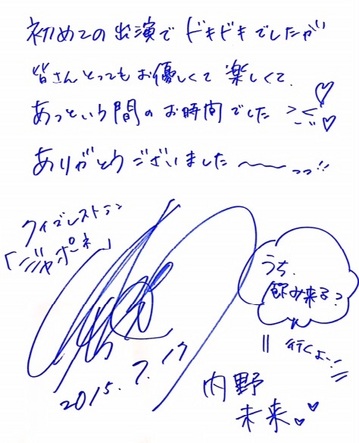 初めての出演でドキドキでしたが
皆さんとってもお優しくて楽しくて、
あっという間のお時間でした ><♡♡
ありがとうございました〜〜っっ!!
クイズレストラン
「ジャポーネ」
うち、
飲み来る?
行くよー!!
2015.7.17
内野
未来♡♡